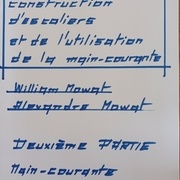 construction
d'escaliers
et de l'utilisation
de la main-courante
William Mowat
Alexandre Mowat
Deuxième PARTIE
Main-courante